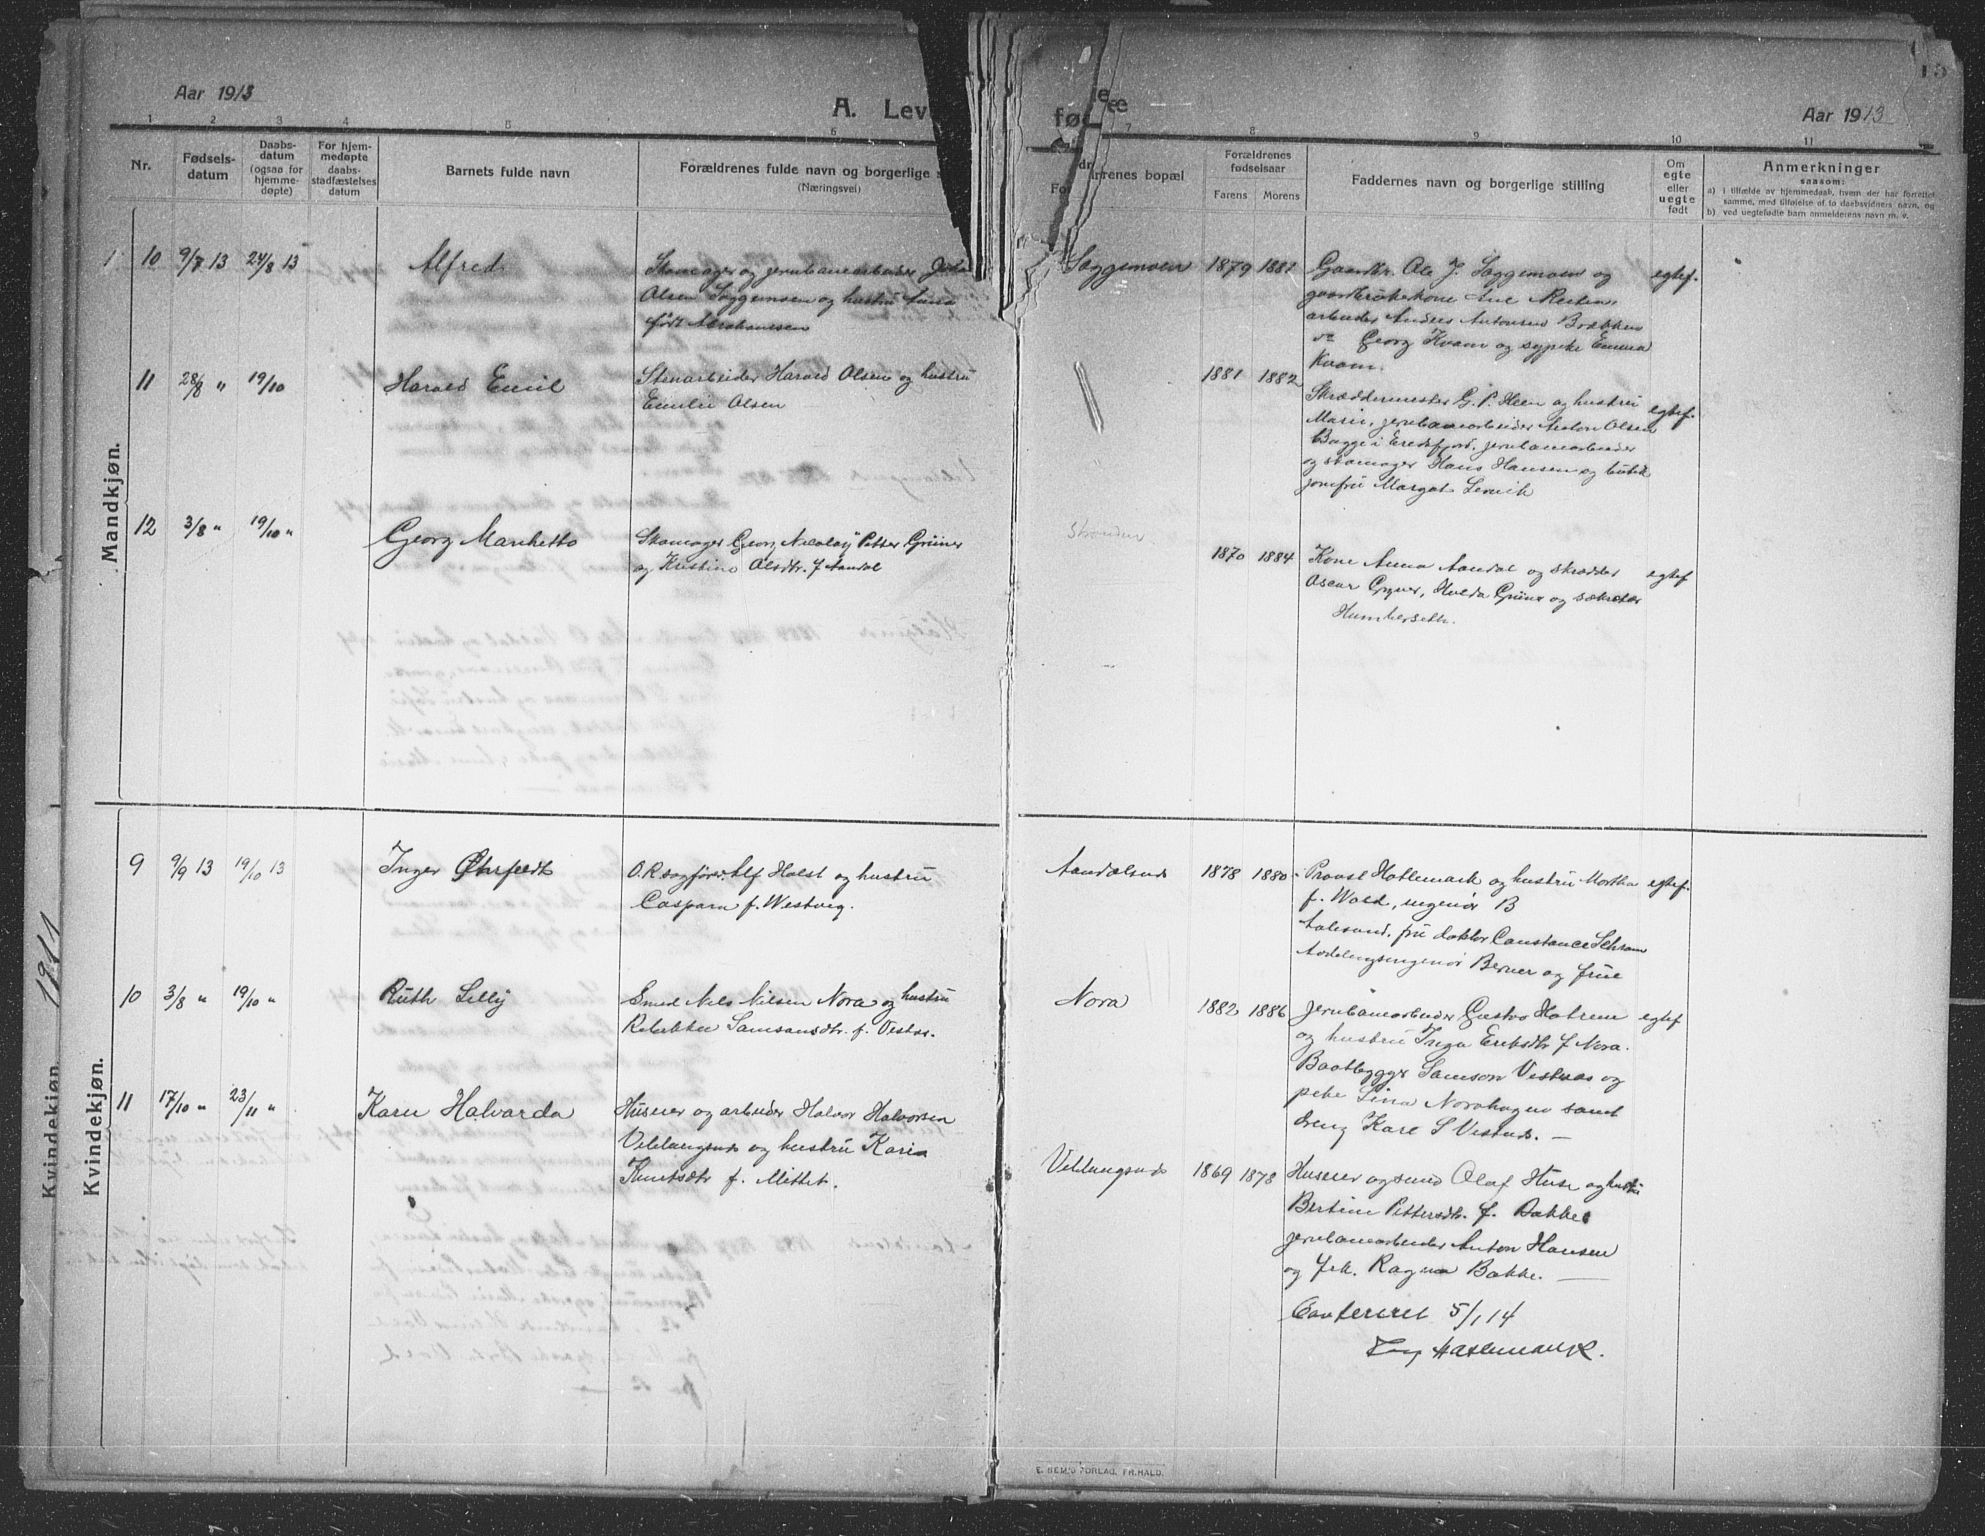 Aar 1913
A. Lev
fød
Aar 1913
15
1 2 3 4 5 6 7 8 9 10 11
Nr.
Fødsels-
datum
Daabs-
datum
(ogsaa for
hjemme-
døpte)
For hjem-
medøpte
daabs-
stadfæstelses
datum
Barnets fulde navn
Forældrenes fulde navn og borgerlige s
(Næringsvei)
rrenes bopæl
Forældrenes
fødselsaar
Farens Morens
Faddernes navn og borgerlige stilling
Om
egte
eller
uegte
født
Anmerkninger
saasom:
a) i tilfælde av hjemmedaab, hvem der har forrettet
samme, med tilføielse af to daabsvidners navn, og
b) ved uegtefødte barn anmelderens navn m. v.
Mandkjøn.
10 9/7 13 24/8 13
Alfred
Skomager og jernbanearbeider
Olsen Soggemoen og hustru
født Abrahamsen
Soggemoen
1879 1881
Gaardbr. Ole J. Soggemoen og
gaardbrukerkone Ane
arbeider Anders Antonsen Brækken
Georg Kvam og sypike Emma
Kvam.
egtef.
11 28/8 " 19/10
Harald Emil
Stenarbeider Harald Olsen og hustru
Emilie Olsen
1881 1882
Skræddermester G. P. Heen og hustru
Marie, jernbanearbeider Anton Olsen
Bugge i Eredsfjord, jernbanearbeider
og skomager Hans Hansen og butik
jomfru Margot
egtef.
12 3/8 " 19/10 "
Georg
Skomager Georg Nicolay Petter Grüner
og Kristine Olsdtr. f. Aandal
Stranden
1870 1884
Kone Anna Aandal og skrædder
Oscar Gryner, Hulda Grüner og
Humberseth.
egtef
Kvindekjøn.
9 9/9 13 19/10 13
Inger
O.R.sagfører Alf Holst og hustru
Caspara f. Westvig.
Aandalsnes
1878 1880
Provst Hatlemark og hustru Martha
f. Wold, ingeniør B
Aalesund, fru doktor Constance Schram
Avdelingsingeniør Berner og frue
egtef.
10 3/8 " 19/10 "
Ruth Lilly
Smed Nils Nilsen Nora og hustru
Rebekka Samsonsdtr. f. Vestnes.
Nora
1882 1886
Jernbanearbeider Gustav
og hustru Inga Eriksdtr f Nora.
Baatbygger Samson Vestnes og
pike Lina Norahagen samt
dreng Kare S Vestnes. —
egtef
11 17/10 " 23/11 "
Karen Halvarda
Huseier og arbeider Halvor Halvorsen
Veblungsnes og hustru Karen
Knutsdtr f. Mittet.
Veblungsnes
1869 1878
Huseier og smed Olaf Huse og hustru
Bertine Pettersdtr. f. Bakke
jernbanearbeider Anton Hansen
og frk. Ragna Bakke. —
Confereret 5/1 14
Hatlemark.
Kvindekjøn.
1911
E. SEM'S FORLAG, FR.HALD.